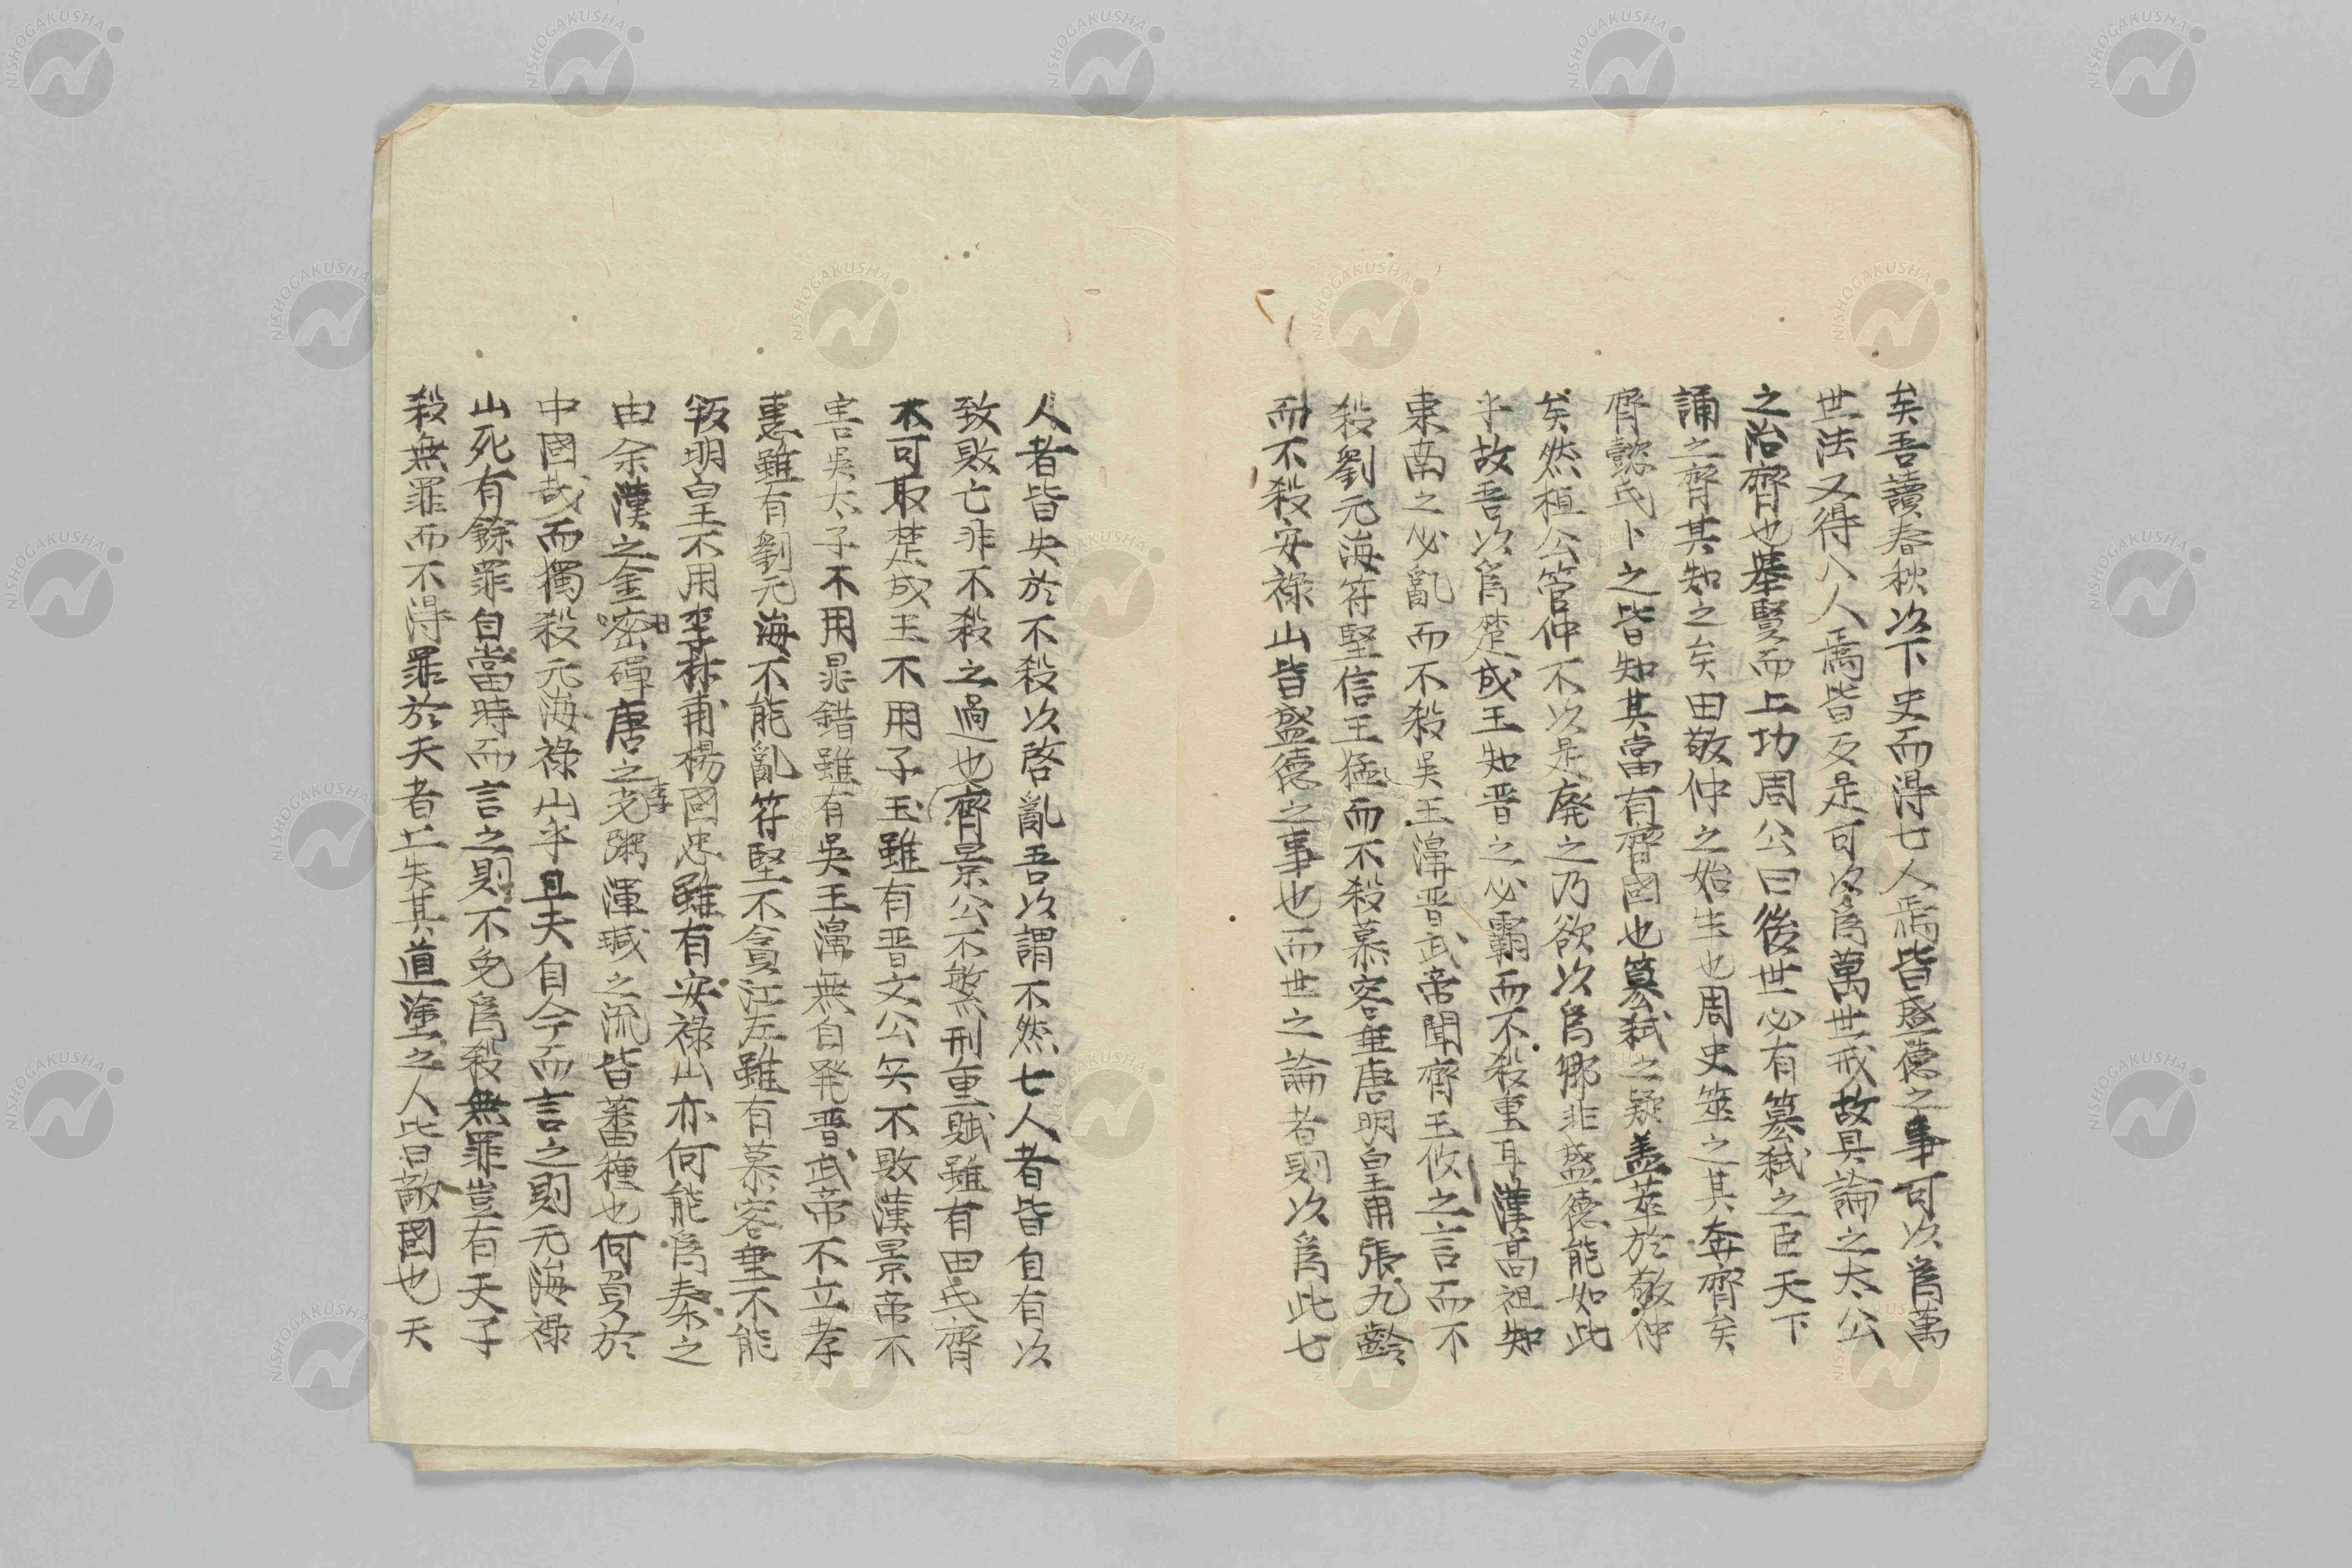 矣吾讀春秋以下史而得七人焉皆盛德之事可以爲萬
世法又得八人焉皆反是可以爲萬世戒故具論之太公
之治齊也舉賢而上功周公曰後世必有篡弑之臣天下
誦之齊其知之矣田敬仲之始生也周史筮之其奔齊矣
齊懿氏卜之皆知其當有齊國也篡弑之疑盖萃於敬仲
矣然桓公管仲不以是廢之乃欲以爲卿非盛德能如此
乎故吾以爲楚成王知晋之必霸而不殺重耳漢高祖知
東南之必亂而不殺吳王濞晋武帝聞齊王攸之言而不
殺劉元海苻堅信王猛而不殺慕容垂唐明皇用張九齡
而不殺安禄山皆盛德之事也而世之論者則以爲此七
人者皆失於不殺以啓亂吾以謂不然七人者皆自有以
致敗亡非不殺之過也齊景公不繁刑重賦雖有田氏齊
不可取楚成王不用子玉雖有晋文公矣不敗漢景帝不
害吳太子不用晁錯雖有吳王濞無自発晋武帝不立孝
惠雖有劉元海不能亂苻堅不貪江左雖有慕容垂不能
叛明皇不用李林甫楊國忠雖有安禄山亦何能爲秦之
由余漢之金日磾唐之李光弼渾瑊之流皆蕃種也何負於
中國哉而獨殺元海禄山乎且夫自今而言之則元海禄
山死有餘罪自當時而言之則不免爲殺無罪豈有天子
殺無罪而不得罪於天者上失其道塗之人皆敵國也天
NISHOGAKUSHA